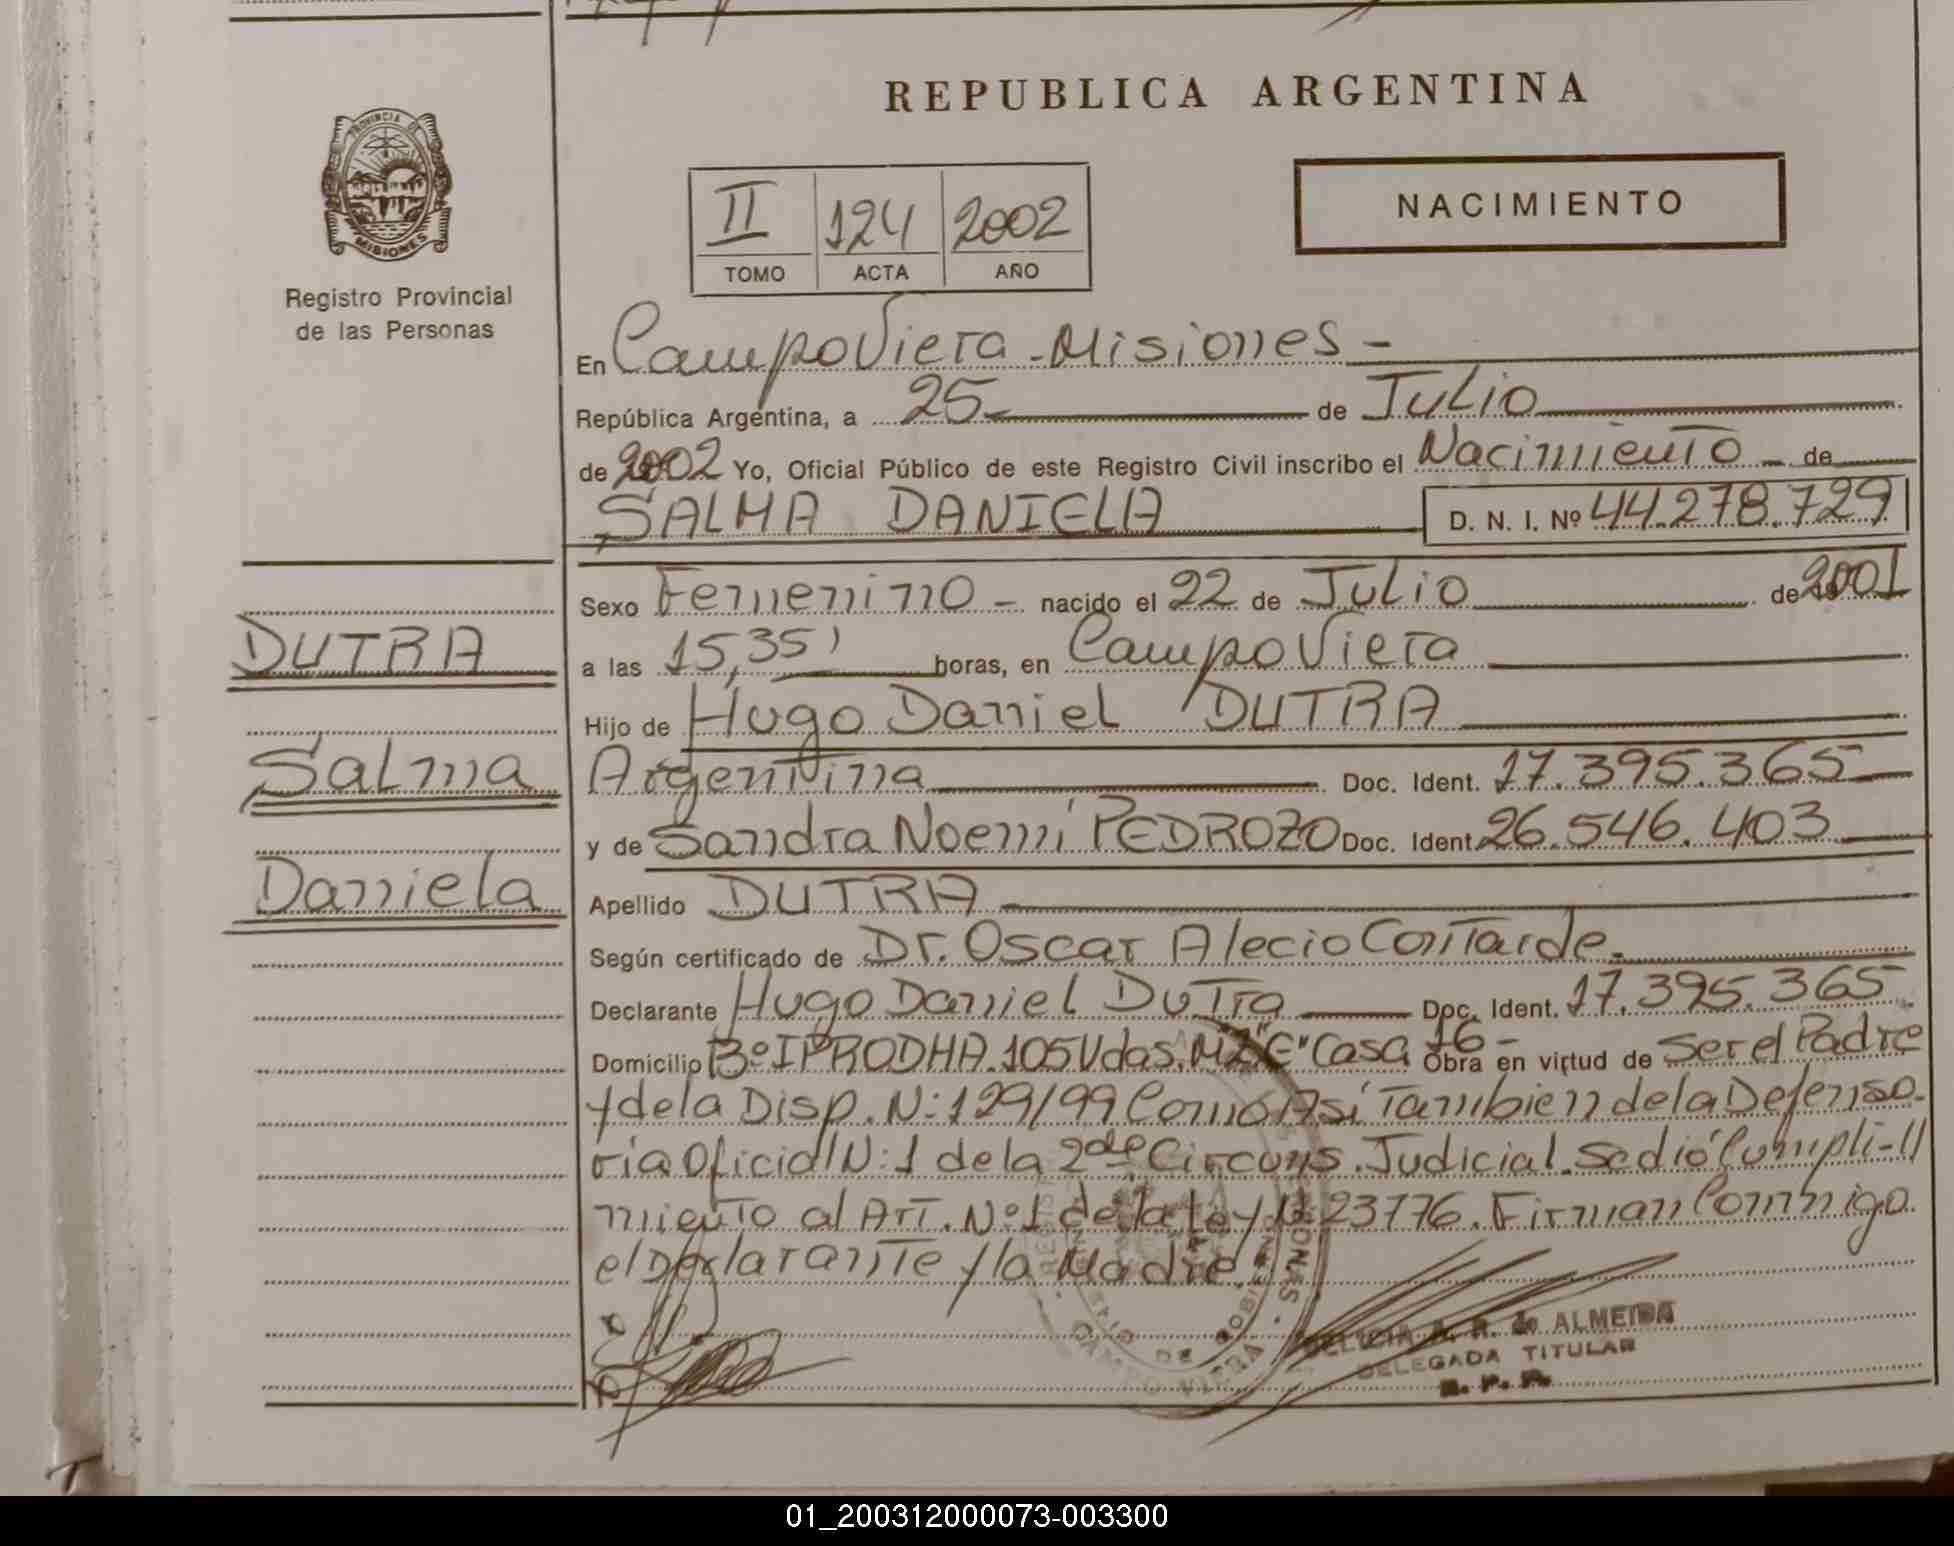 REPUBLICA ARGENTINA
PROVINCIA DE
MISIONES
Registro Provincial
de las Personas
II 124 2002
TOMO ACTA AÑO
NACIMIENTO
En Campo Viera - Misiones -
República Argentina, a 25 de Julio
de 2002 Yo, Oficial Público de este Registro Civil inscribo el Nacimiento - de
SALMA DANIELA D. N. I. Nº 44.278.729
Sexo Femenino - nacido el 22 de Julio de 2001
a las 15,35' horas, en Campo Viera
Hijo de Hugo Daniel DUTRA
Argentina Doc. Ident. 17.395.365
y de Sandra Noemí PEDROZO Doc. Ident. 26.546.403
Apellido DUTRA
Según certificado de Dr. Oscar Alecio Contarde.
Declarante Hugo Daniel Dutra Doc. Ident. 17.395.365
Domicilio Bº IPRODHA. 105 Vdas. Casa 16 - Obra en virtud de Ser el Padre
y de la Disp. N: 129/99 Como Asi Tambien de la Defenso-
ria Oficial N: 1 de la 2da Circuns. Judicial. Se dió Cumpli-
miento al Art. Nº 1 de la Ley Nº 23776. Firman Conmigo
el Declarante y la Madre.
DUTRA
Salma
Daniela
A. R. de ALMEIDA
DELEGADA TITULAR
R. P. P.
01_200312000073-003300